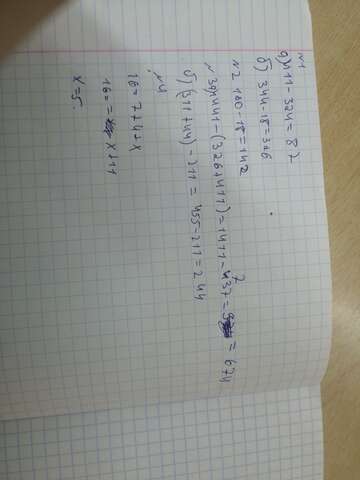 №1
а) 411 - 324 = 87
б) 344 - 18 = 326
№2 160 - 18 = 142
№3 а) 1411 - (326 + 411) = 1411 - 737 = = 674
б) (311 + 44) - 211 = 455 - 211 = 244
№4
16 = 7 + 4 + x
16 = x + 11
x = 5.